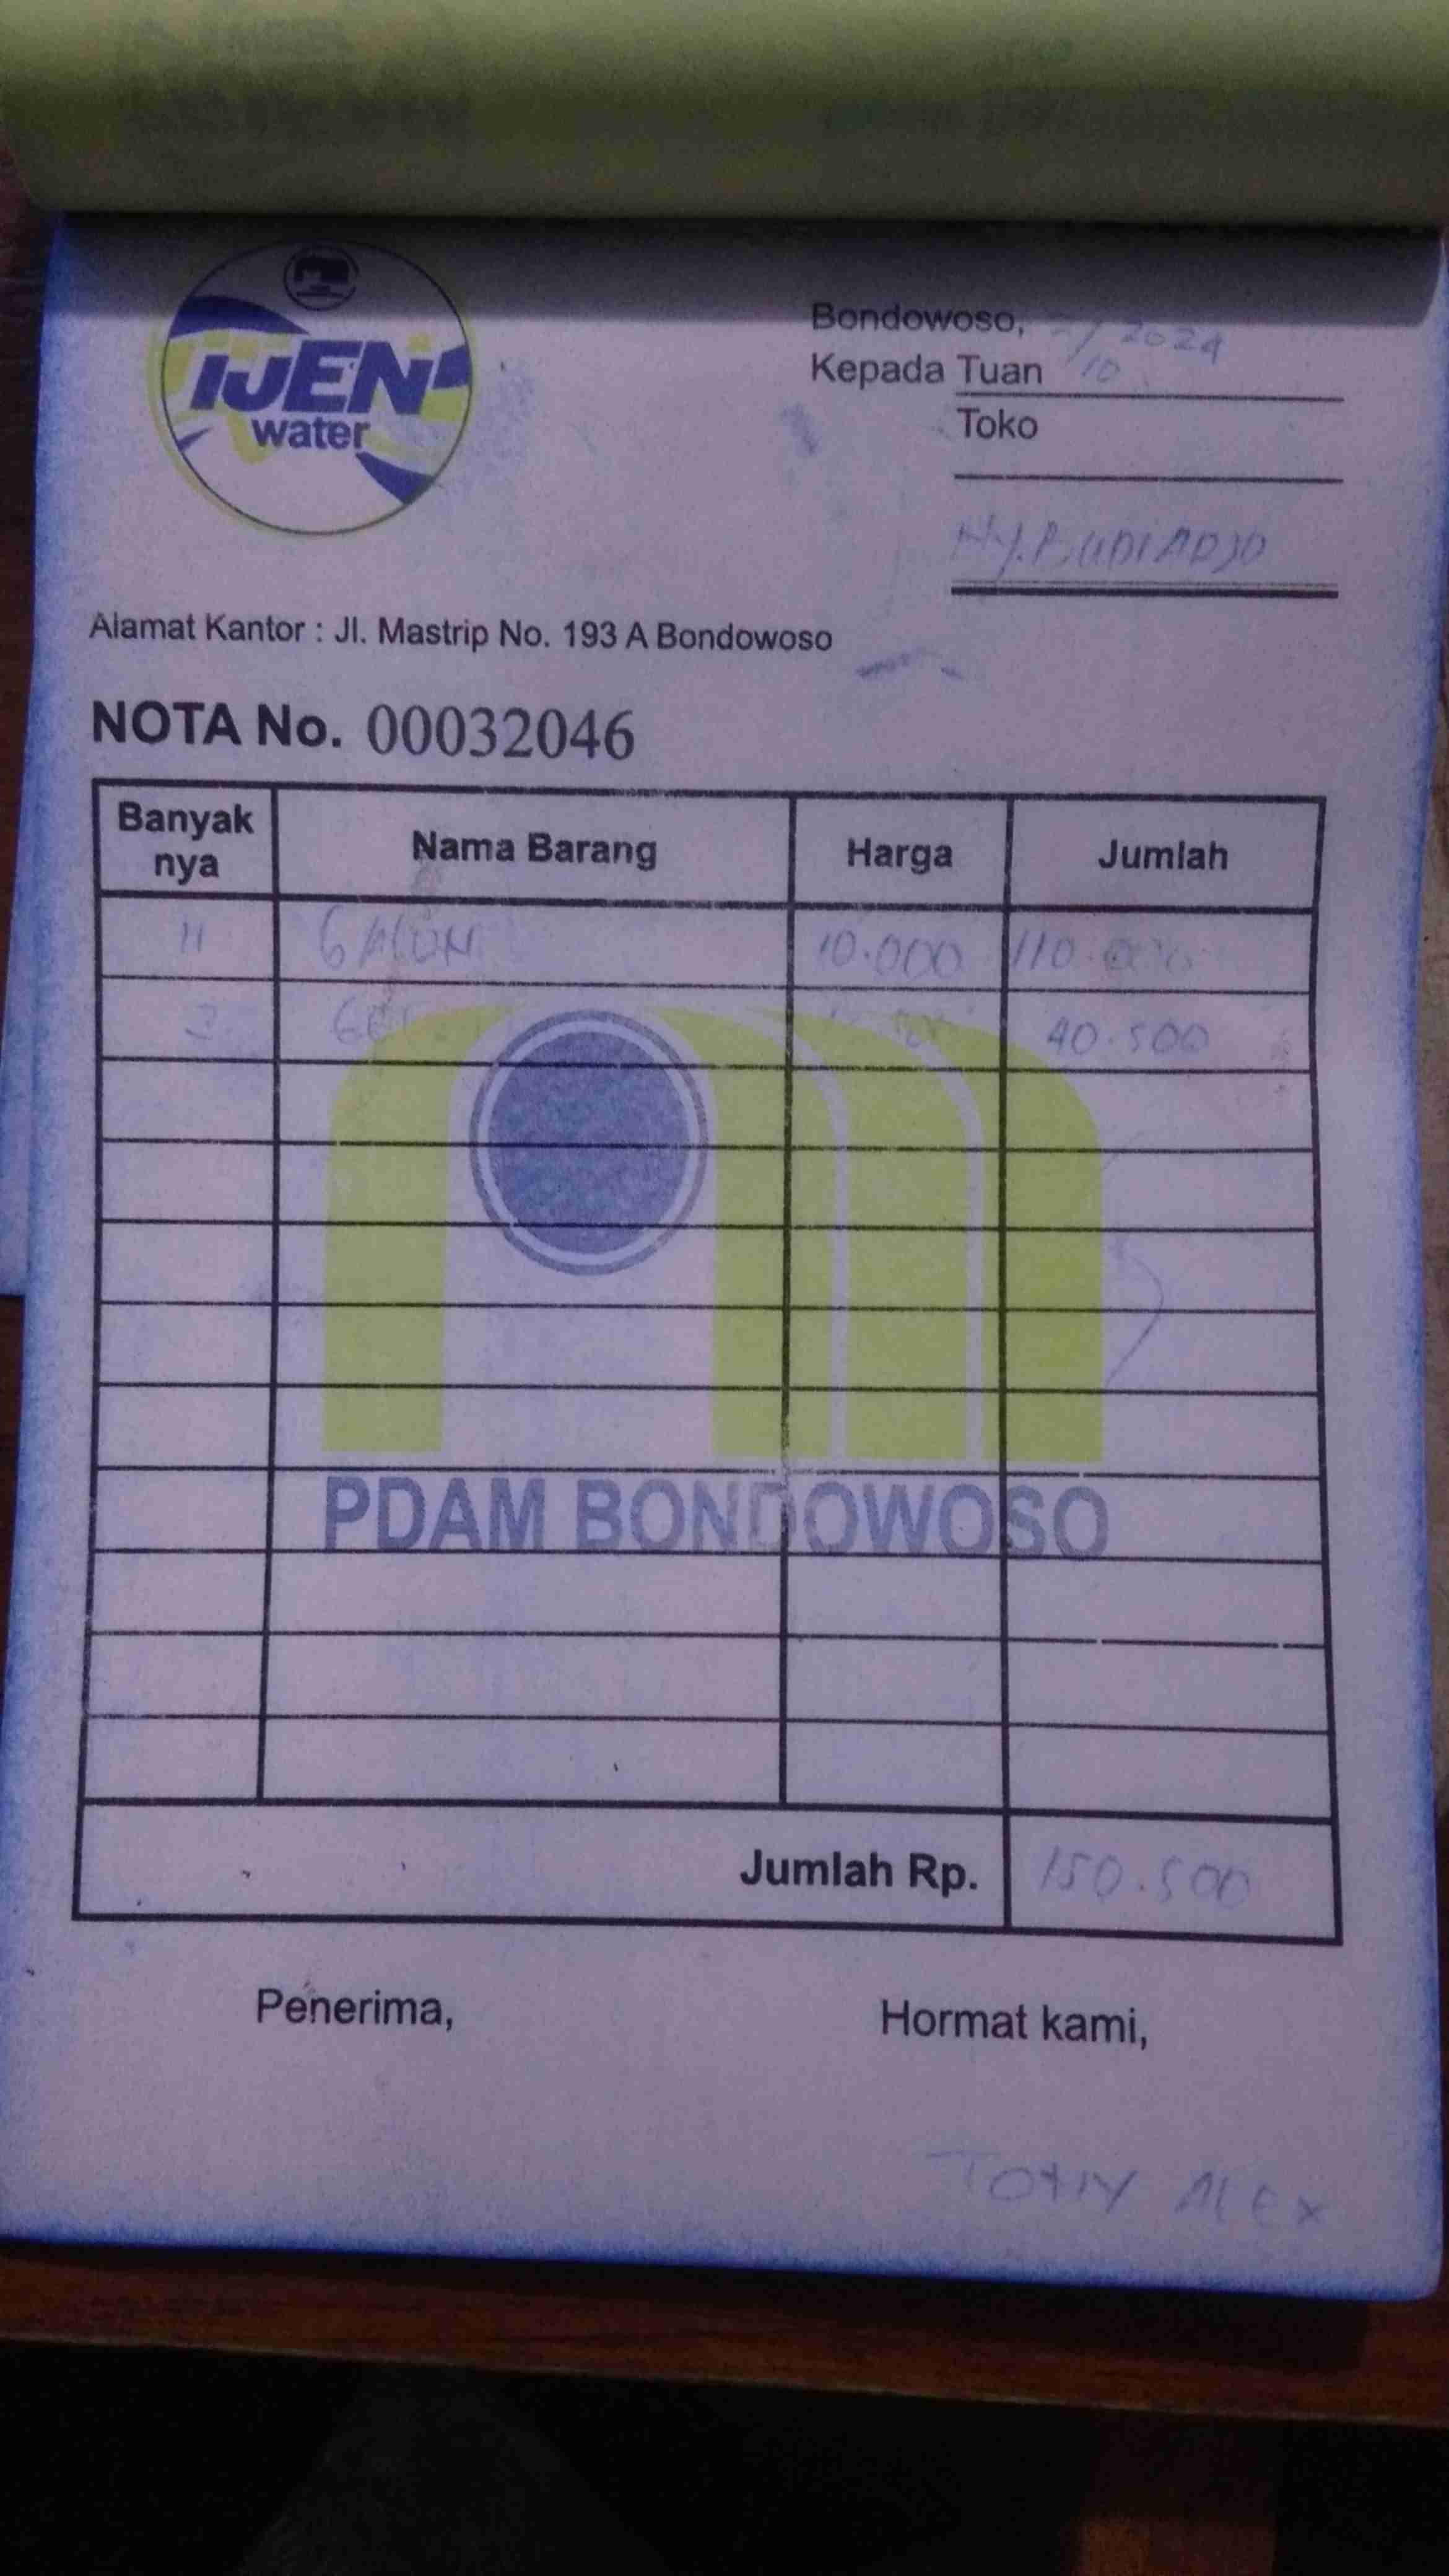 IJEN
water
Bondowoso, /10 2024
Kepada Tuan
Toko
Ny. BUDIARJO
Alamat Kantor : Jl. Mastrip No. 193 A Bondowoso
NOTA No. 00032046
Banyak nya Nama Barang Harga Jumlah
11 GALON 10.000 110.000
3 40.500
PDAM BONDOWOSO
Jumlah Rp. 150.500
Penerima, Hormat kami,
ALEX